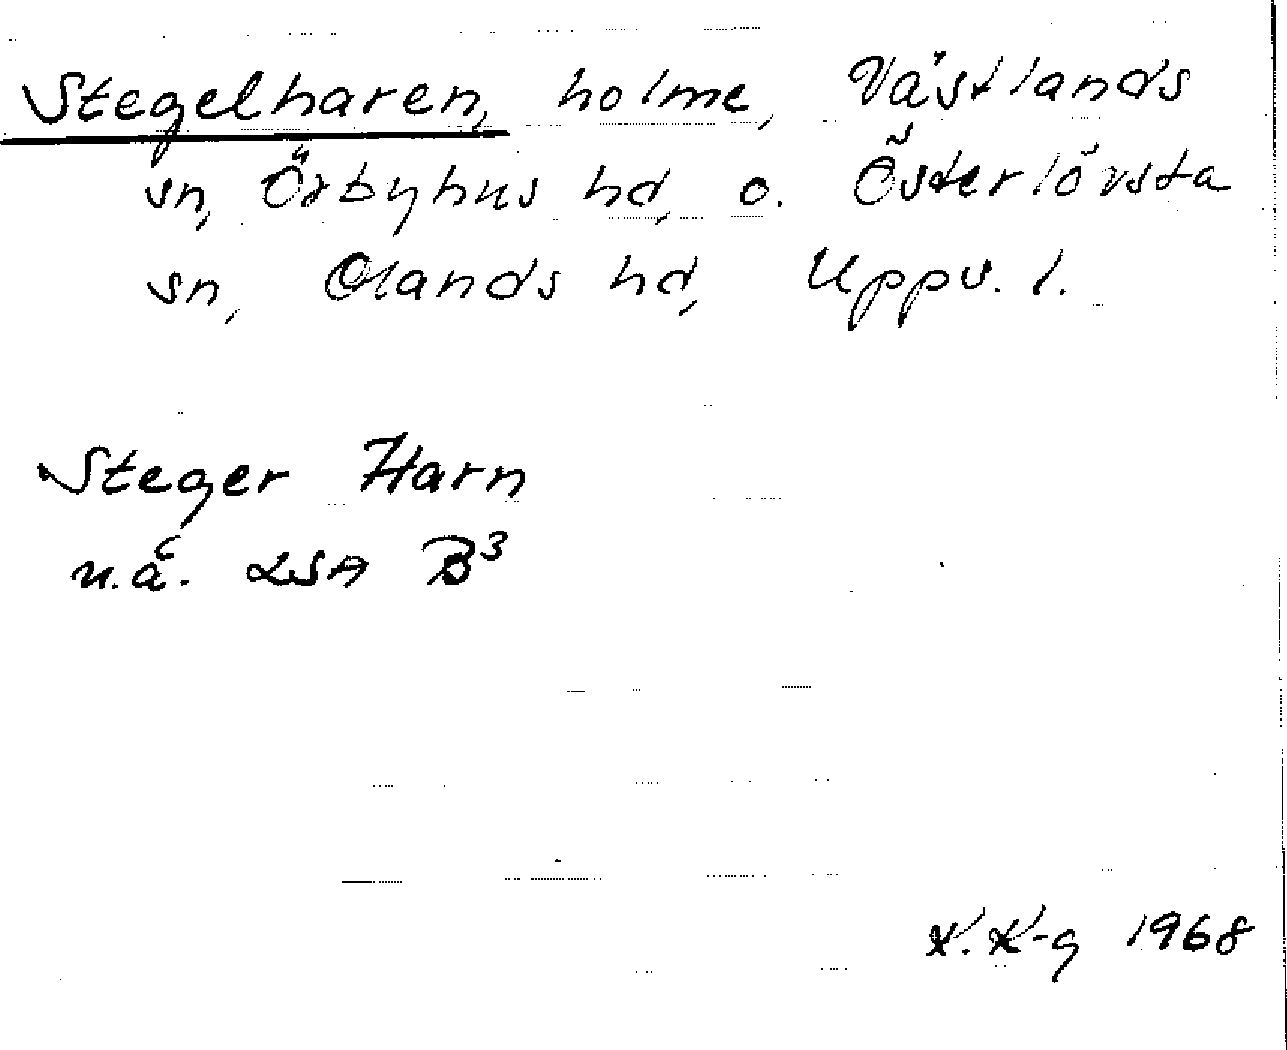 Stegelharen, holme, Västlands
sn, Örbyhus hd, o. Österlövsta
sn, Olands hd, Uppv. l.
Steger Harn
u.å. LSA B³
K. K-g 1968